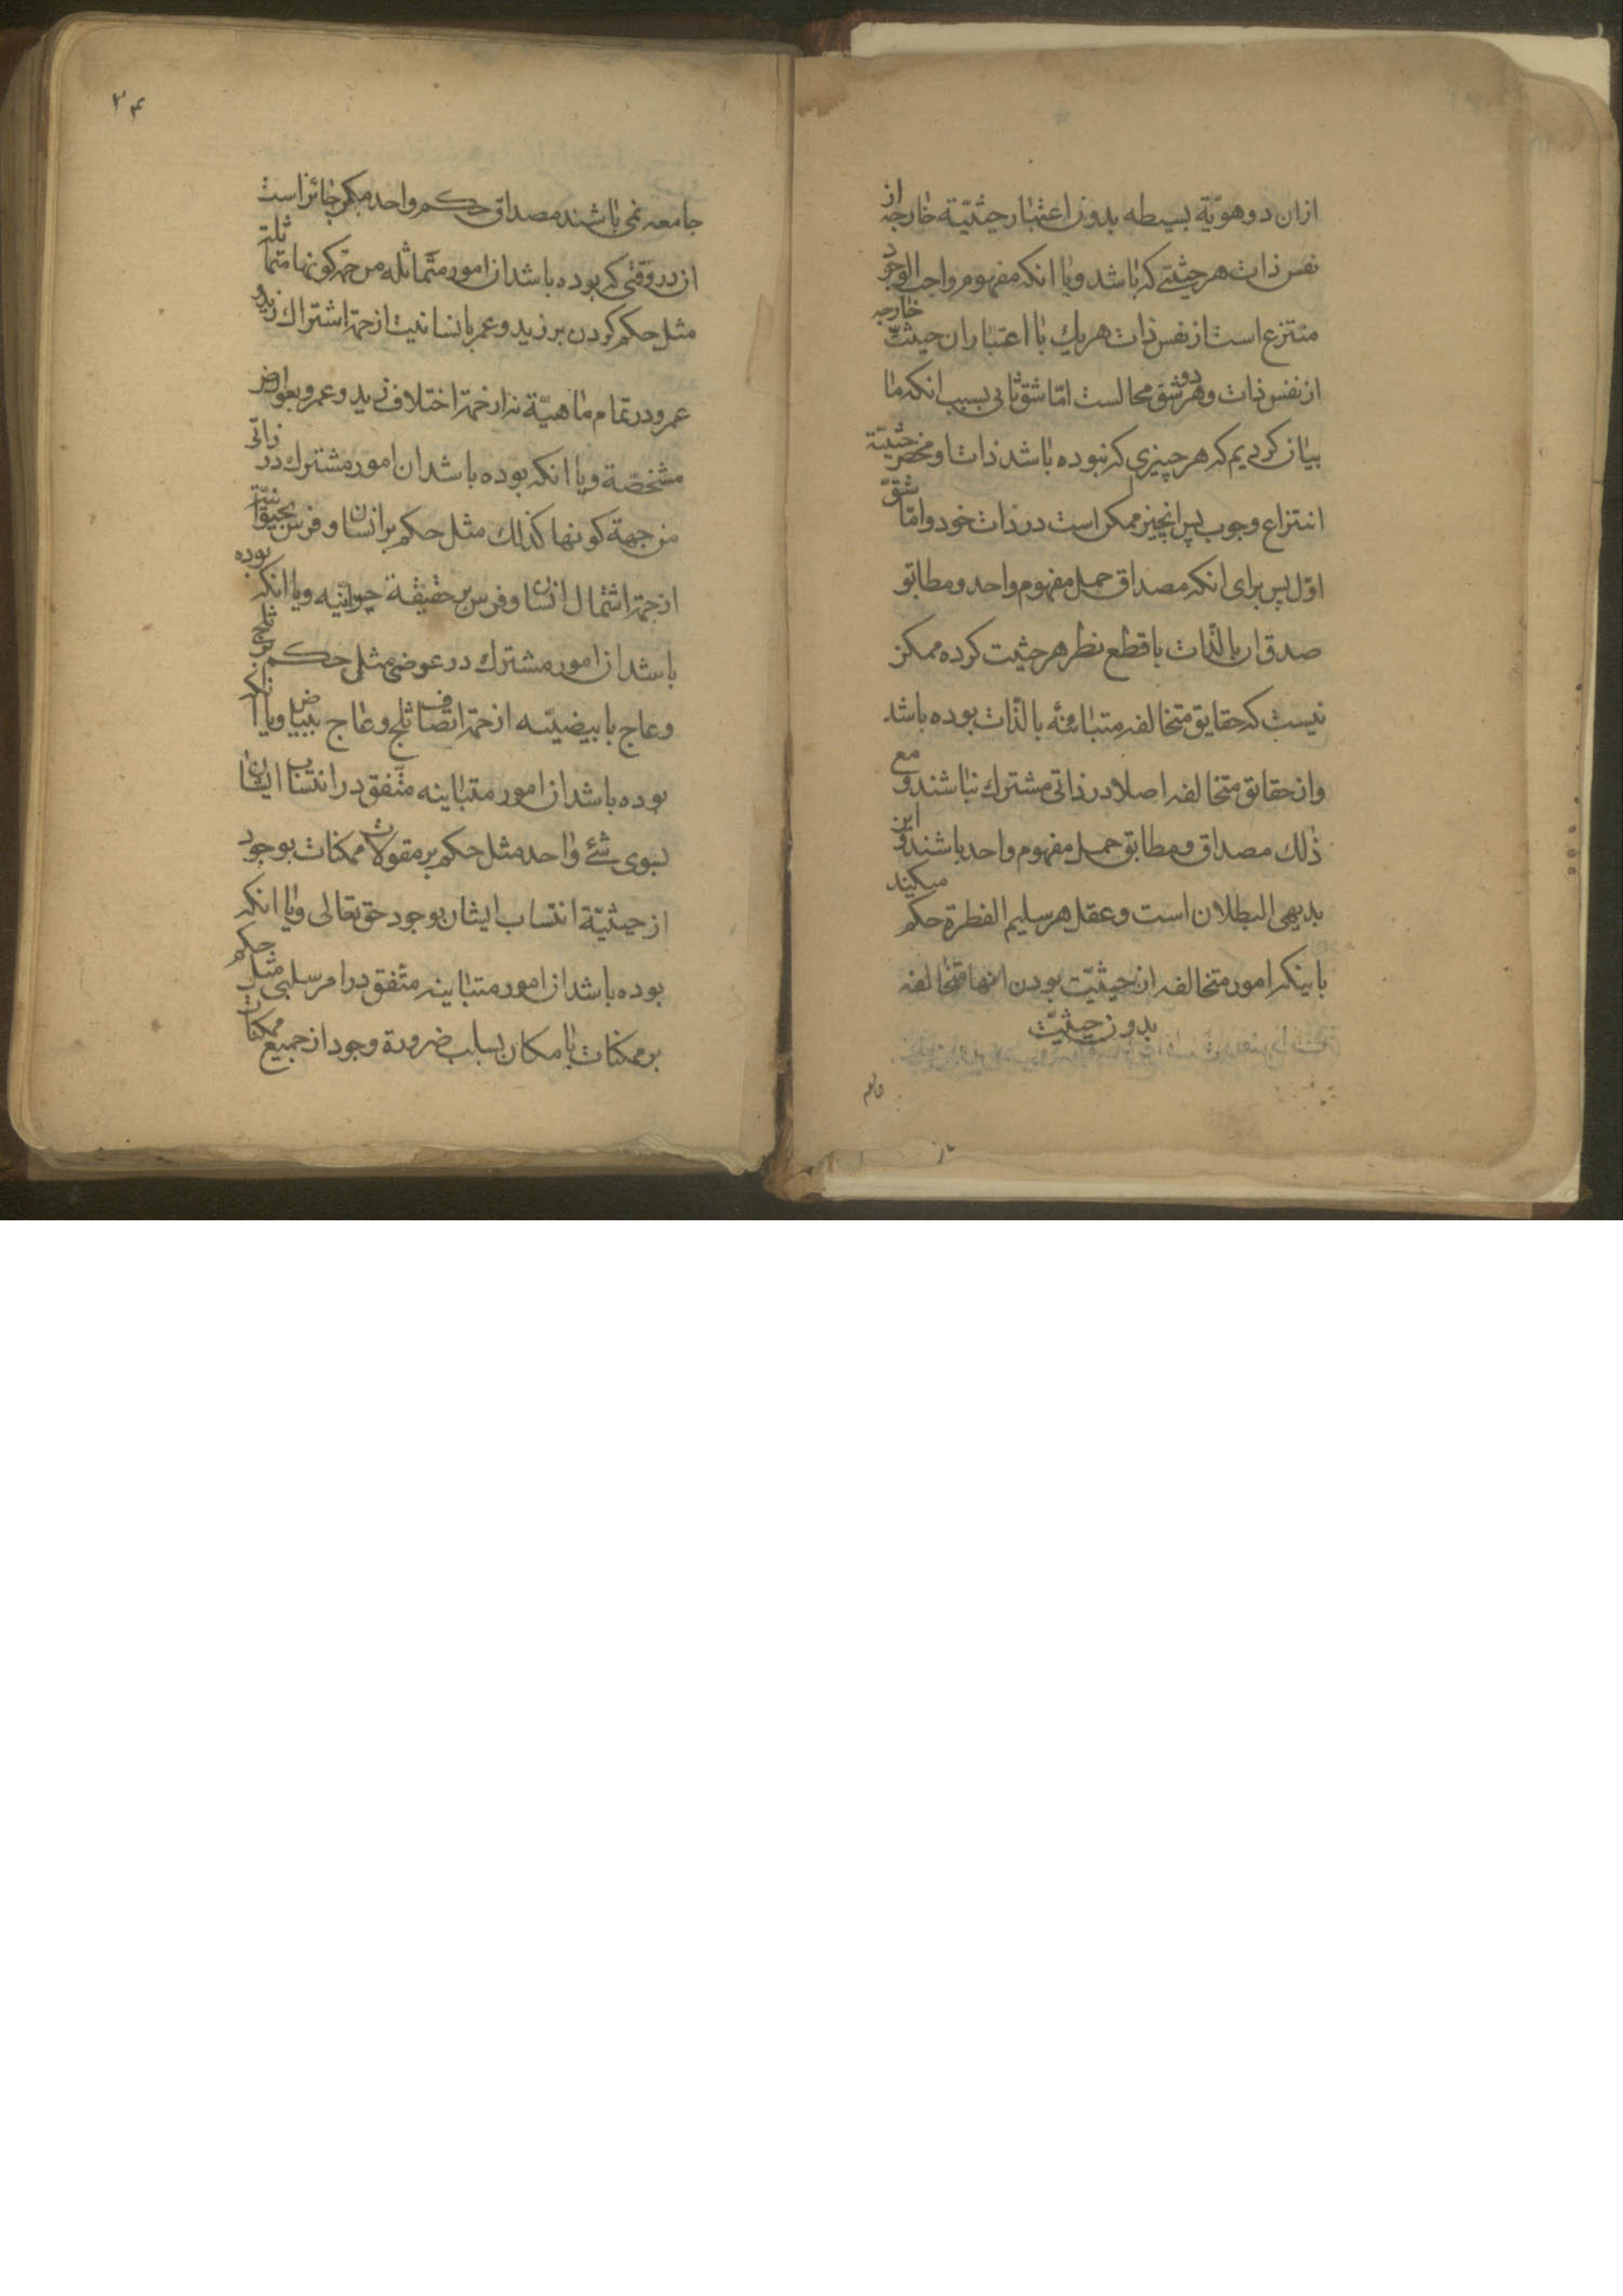 ازان دو هویّة بسیطه بدون اعتبار حیثیّة خارجه از
نفس ذات هر حیثتے که باشد ویا انکه مفهوم واجب الوجود
منتزع است از نفس ذات هر یك با اعتبار ان حیثیّت خارجه
از نفس ذات وهر دو شق محالست امّا شق ثانی بسبب انکه ما
بیان کردیم که هر چیزی که نبوده باشد ذات او محض حیثیّة
انتزاع وجوب پس انچیز ممکن است در ذات خود وامّا شقّ
اوّل پس برای انکه مصداق حمل مفهوم واحد ومطابق
صدق ان بالذّات با قطع نظر هر حیثیت کرده ممکن
نیست که حقایق متخالفه متباینه بالذّات بوده باشد
وان حقائق متخالفه اصلا در ذاتی مشترك نباشند ومع
ذلك مصداق ومطابق حمل مفهوم واحد باشند واین
بدیهی البطلان است وعقل هر سلیم الفطرة حکم میکند
باینکه امور متخالفه از حیثیّت بودن انها متخالفه
بدون حیثیّت
۳۴
جامعه نمی باشند مصداق حکم واحد مگر جائز است
ان در وقتی که بوده باشد ان امور متماثله من جهة کونها متماثلة
مثل حکم کردن بر زید وعمر بانسانیت از جهة اشتراك زید و
عمرو در تمام ماهیّة نه از جهة اختلاف زید وعمرو بعوارض
مشخّصة ویا انکه بوده باشد ان امور مشترك در ذاتی
من جهة کونها کذلك مثل حکم بر انسان وفرس بحیوانیّة
از جهة اشتمال انسان وفرس بر حقیقة حیوانیّه ویا انکه بوده
باشد ان امور مشترك در عرضی مثل حکم بر ثلج
وعاج بابیضیّه از جهة اتّصاف ثلج وعاج ببیاض ویا انکه
بوده باشد ان امور متباینه متّفق در انتساب ایشان
بسوی شئے واحد مثل حکم بر مقولات ممکنات بوجود
از حیثیّة انتساب ایشان بوجود حق تعالی ویا انکه
بوده باشد ان امور متباینه متّفق در امر سلبی مثل حکم
بر ممکنات با امکان بسلب ضرورة وجود از جمیع ممکنات